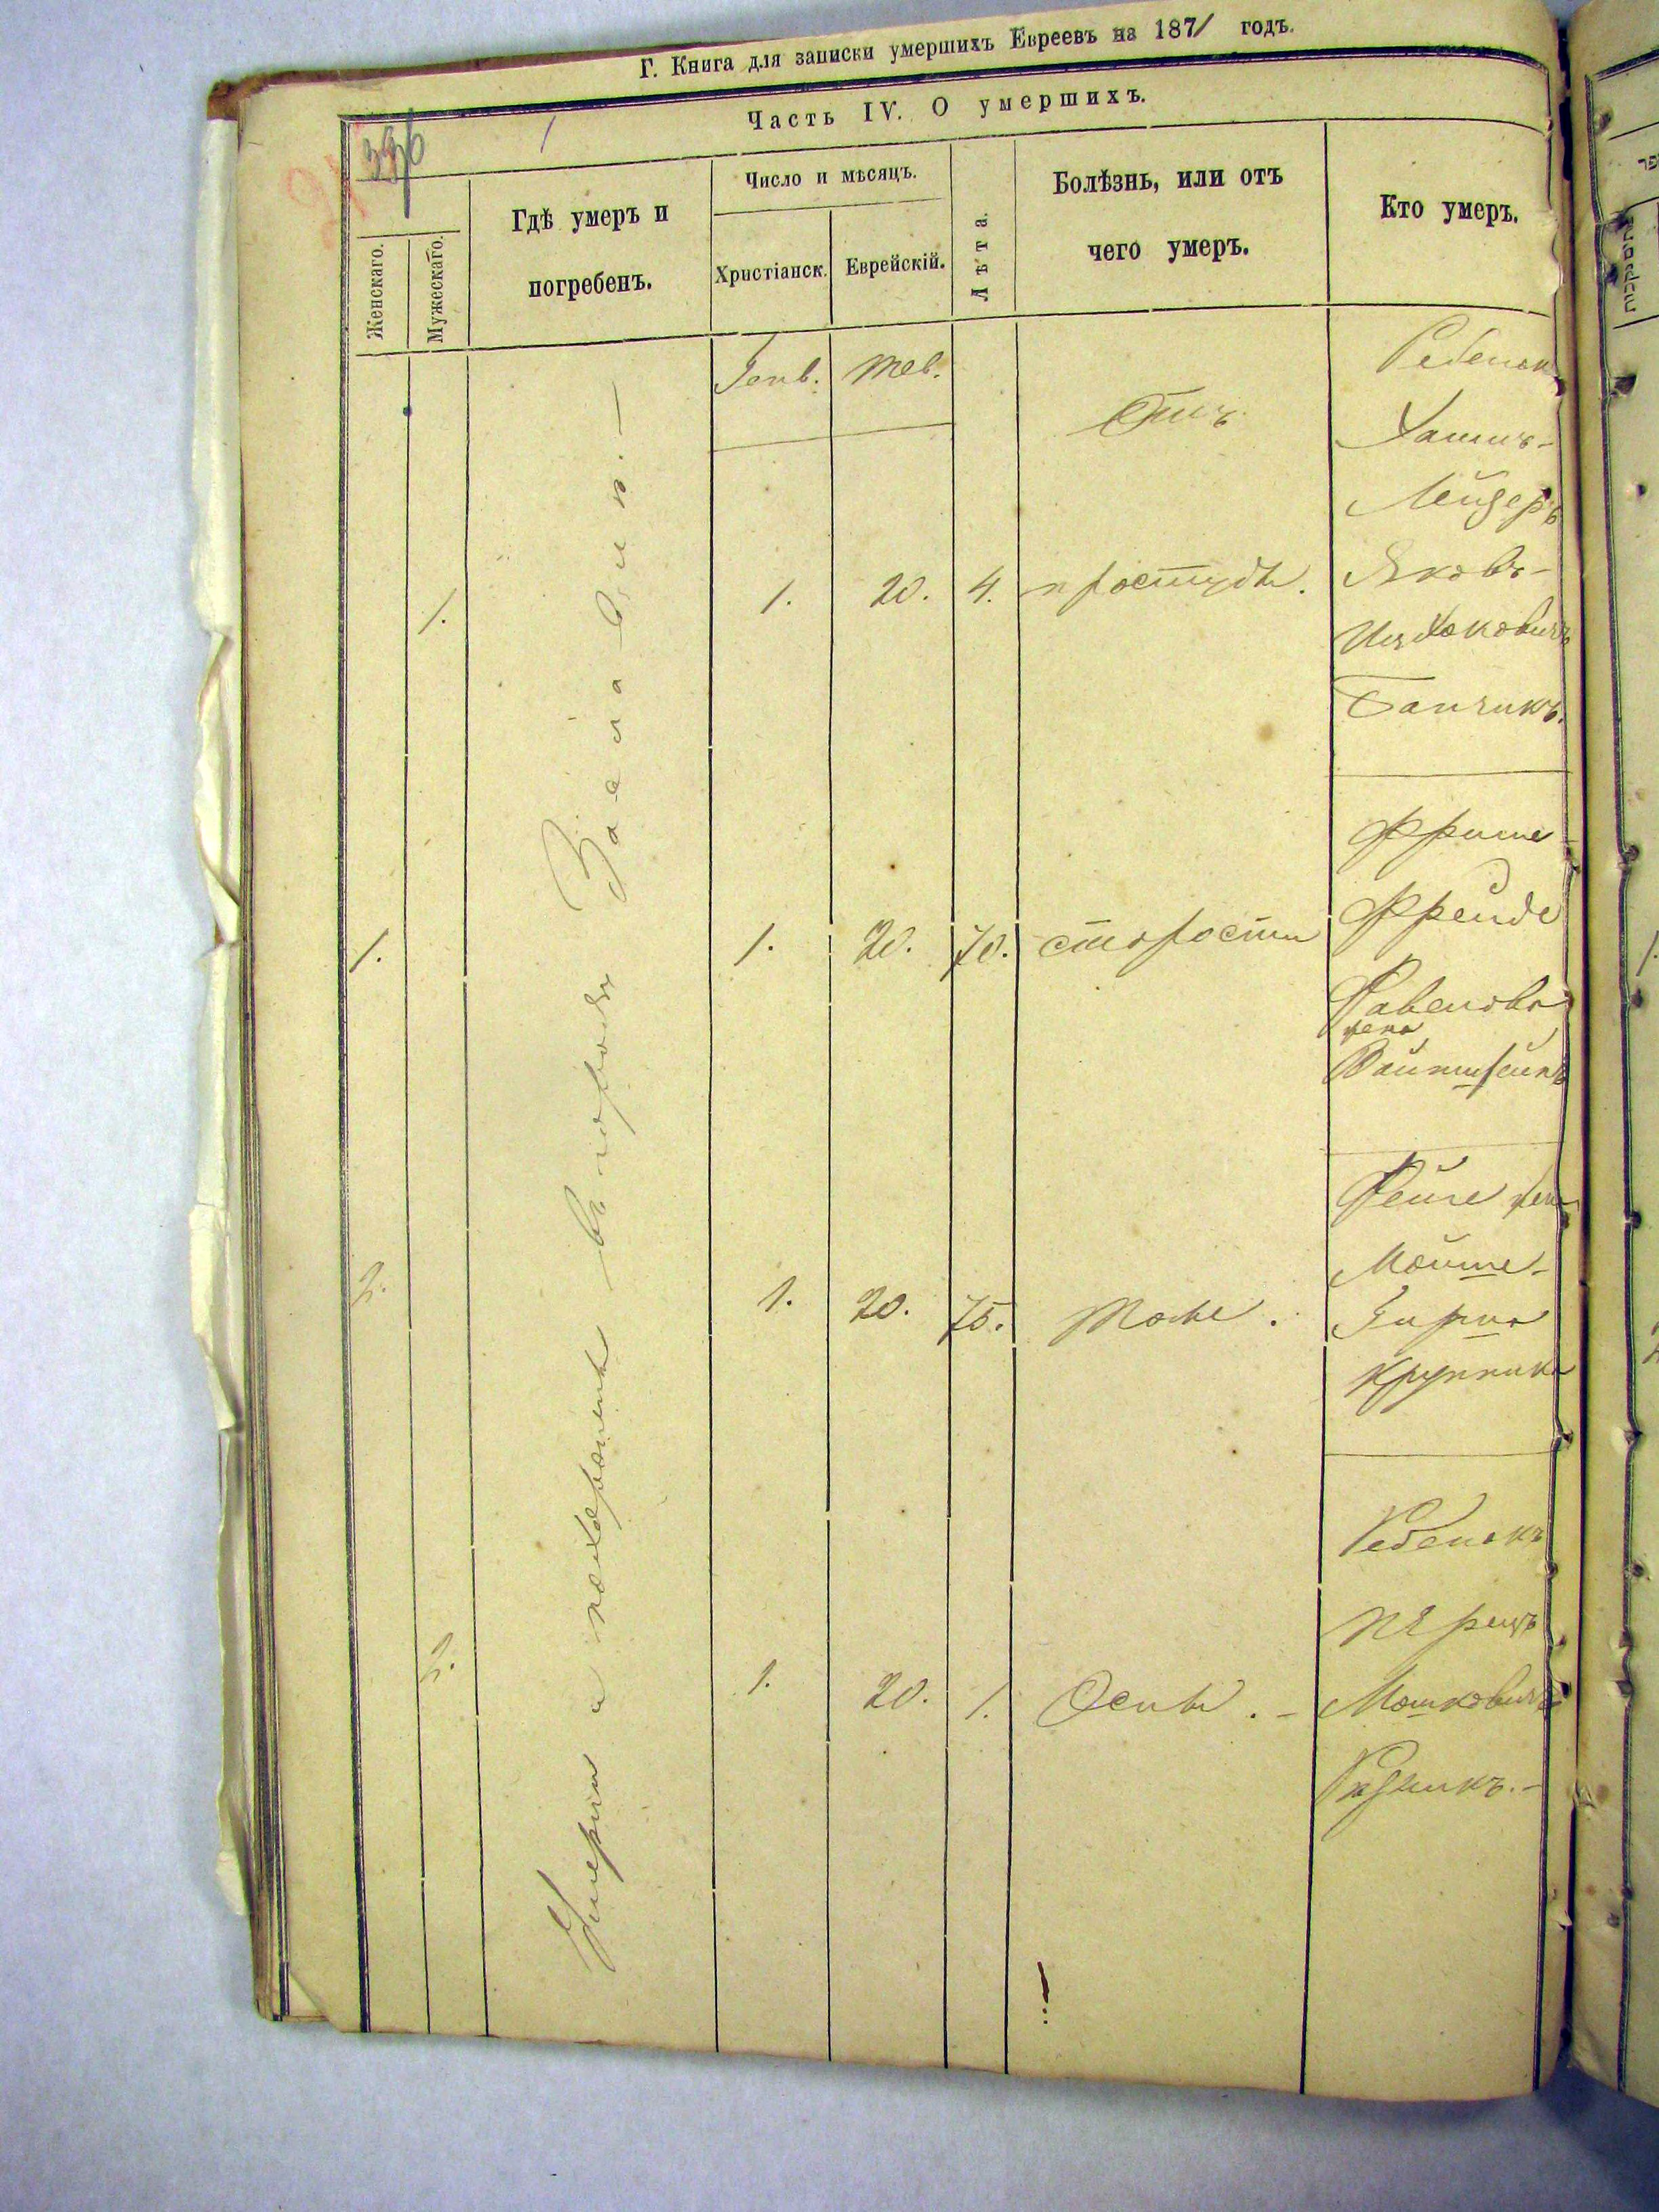 Г. Книга для записки умершихъ Евреевъ на 1871 годъ.
Часть IV. О умершихъ.
Женскаго.
Мужескаго.
Гдѣ умеръ и
погребенъ.
Число и мѣсяцъ.
Христіанск.
Еврейскій.
Лѣта.
Болѣзнь, или отъ
чего умеръ.
Кто умеръ.
Умерли и похоронены въ городѣ Заславлѣ.—
Генв. Тев.
Отъ
1. 1. 20. 4. простуды.
Ребенокъ
Хаимъ-
Лейзеръ
Яковъ-
Ицхоковичъ
Банчикъ.
1. 1. 20. 70. старости
Фрейде
Равенова
жена
2. 1. 20. 75. Тоже.
Мойше-
Крупника
2. 1. 20. 1. Оспы.-
Ребенокъ
Перецъ
Мошковичъ
Резникъ.-